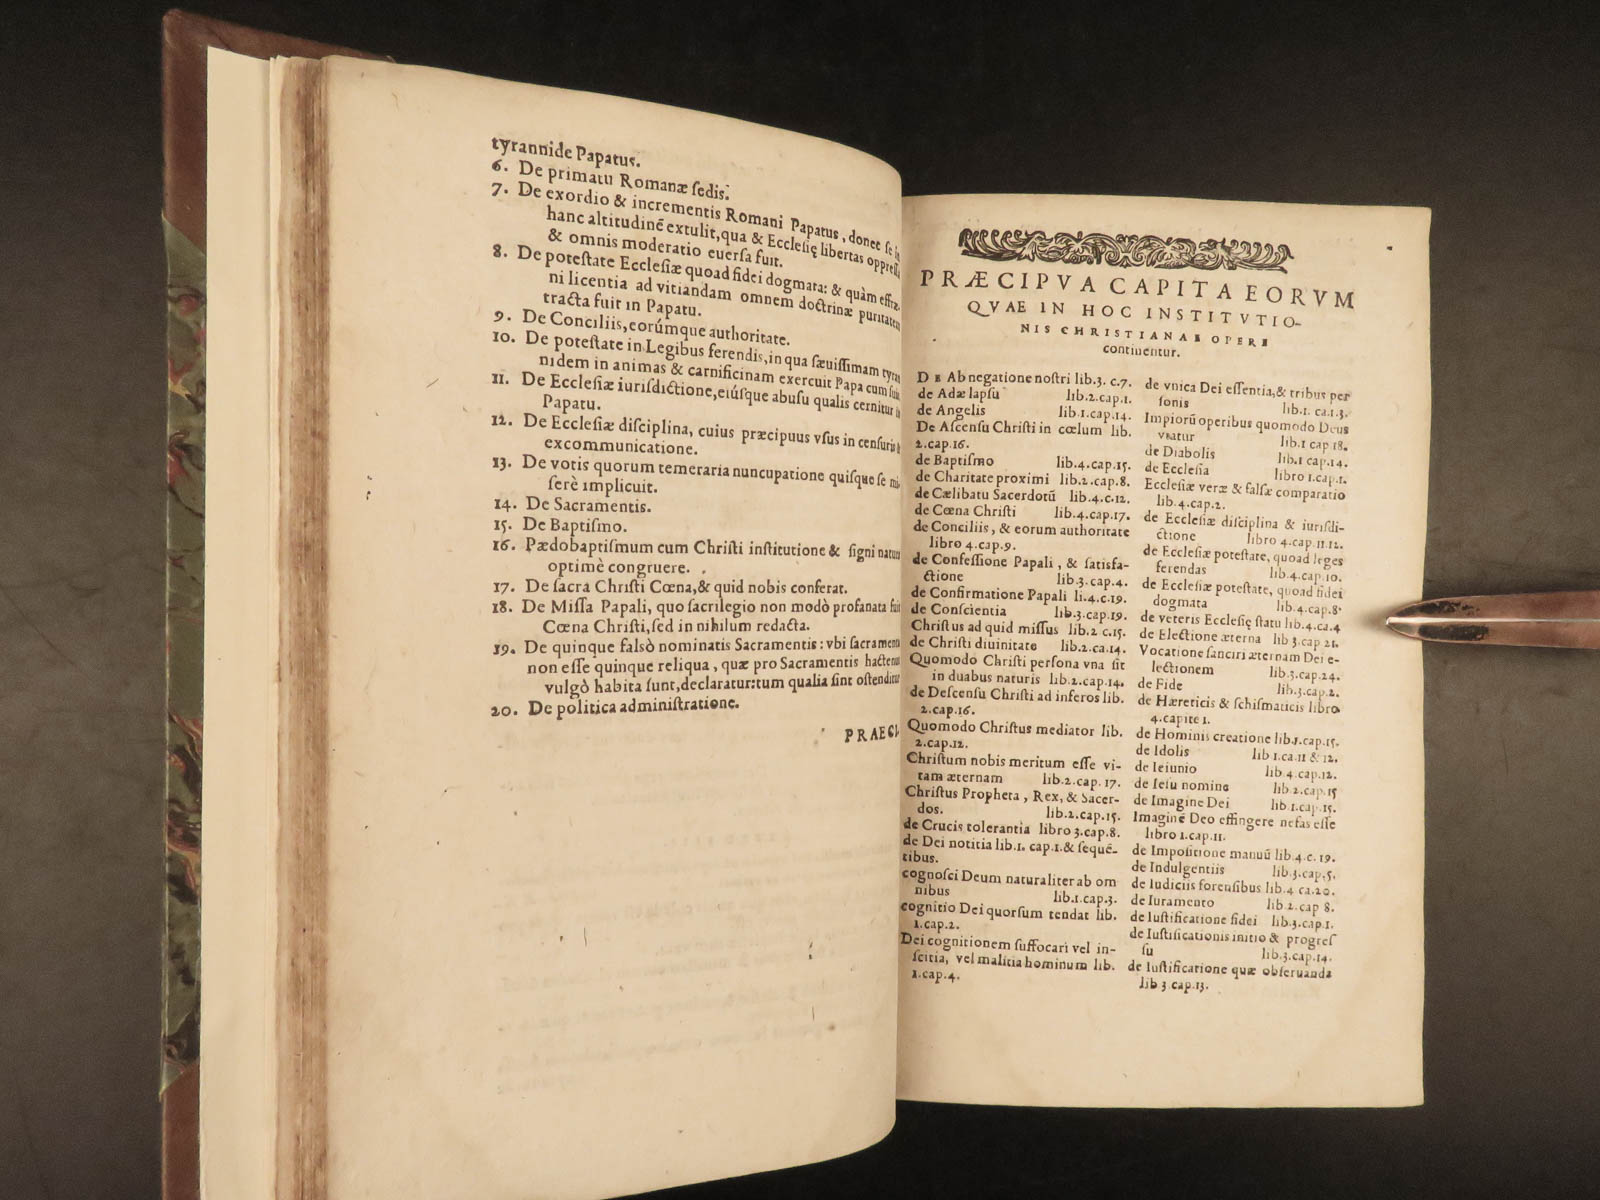 tyrannide Papatus.
6. De primatu Romanæ ſedis.
7. De exordio & incrementis Romani Papatus, donec ſe in
hanc altitudinẽ extulit, qua & Eccleſię libertas oppreſſa
& omnis moderatio euerſa fuit.
8. De poteſtate Eccleſiæ quoad fidei dogmata: & quàm effræ-
ni licentia ad vitiandam omnem doctrinæ puritatem
tracta fuit in Papatu.
9. De Conciliis, eorúmque authoritate.
10. De poteſtate in Legibus ferendis, in qua ſæuiſſimam tyran
nidem in animas & carnificinam exercuit Papa cum ſuis
11. De Eccleſiæ iuriſdictione, eiúſque abuſu qualis cernitur in
Papatu.
12. De Eccleſiæ diſciplina, cuius præcipuus vſus in cenſuris &
excommunicatione.
13. De votis quorum temeraria nuncupatione quiſque ſe mi-
ſerè implicuit.
14. De Sacramentis.
15. De Baptiſmo.
16. Pædobaptiſmum cum Chriſti inſtitutione & ſigni natura
optimè congruere.
17. De ſacra Chriſti Cœna, & quid nobis conferat.
18. De Miſſa Papali, quo ſacrilegio non modò profanata fuit
Cœna Chriſti, ſed in nihilum redacta.
19. De quinque falsò nominatis Sacramentis: vbi ſacramenta
non eſſe quinque reliqua, quæ pro Sacramentis hactenus
vulgò habita ſunt, declaratur: tum qualia ſint oſtenditur
20. De politica adminiſtratione.
PRAECI-
PRÆCIPVA CAPITA EORVM
QVAE IN HOC INSTITVTIO-
NIS CHRISTIANAE OPERE
continentur.
DE Abnegatione noſtri lib.3. c.7.
de Adæ lapſu lib.2.cap.1.
de Angelis lib.1.cap.14.
De Aſcenſu Chriſti in cœlum lib.
2.cap.16.
de Baptiſmo lib.4.cap.15.
de Charitate proximi lib.2.cap.8.
de Cælibatu Sacerdotū lib.4.c.12.
de Cœna Chriſti lib.4.cap.17.
de Conciliis, & eorum authoritate
libro 4.cap.9.
de Confeſſione Papali, & ſatisfa-
ctione lib.3.cap.4.
de Confirmatione Papali li.4.c.19.
de Conſcientia lib.3.cap.19.
Chriſtus ad quid miſſus lib.2 c.15.
de Chriſti diuinitate lib.2.ca.14.
Quomodo Chriſti perſona vna ſit
in duabus naturis lib.2.cap.14.
de Deſcenſu Chriſti ad inferos lib.
2.cap.16.
Quomodo Chriſtus mediator lib.
2.cap.12.
Chriſtum nobis meritum eſſe vi-
tam æternam lib.2.cap.17.
Chriſtus Propheta, Rex, & Sacer-
dos. lib.2.cap.15.
de Crucis tolerantia libro 3.cap.8.
de Dei notitia lib.1. cap.1.& ſequẽ-
tibus.
cognoſci Deum naturaliter ab om
nibus lib.1.cap.3.
cognitio Dei quorſum tendat lib.
1.cap.2.
Dei cognitionem ſuffocari vel in-
ſcitia, vel malitia hominum lib.
1.cap.4.
de vnica Dei eſſentia, & tribus per
ſonis lib.1. ca.13.
Impiorū operibus quomodo Deus
vtatur lib.1 cap 18.
de Diabolis lib.1 cap.14.
de Eccleſia libro 1.cap.1.
Eccleſiæ veræ & falſæ comparatio
lib.4.cap.2.
de Eccleſiæ diſciplina & iuriſdi-
ctione libro 4.cap.11.12.
de Eccleſiæ poteſtate, quoad leges
ferendas lib.4.cap.10.
de Eccleſiæ poteſtate, quoad fidei
dogmata lib.4.cap.8.
de veteris Eccleſię ſtatu lib.4.ca.4
de Electione æterna lib 3.cap 21.
Vocatione ſanciri æternam Dei e-
lectionem lib.3.cap.24.
de Fide lib.3.cap.2.
de Hæreticis & ſchiſmaticis libro
4.capite 1.
de Hominis creatione lib.1.cap.15.
de Idolis lib 1.ca.11 & 12.
de Ieiunio lib.4.cap.12.
de Ieſu nomine lib.2.cap.15
de Imagine Dei lib.1.cap.15.
Imaginẽ Deo effingere nefas eſſe
libro 1.cap.11.
de Impoſitione manuū lib.4.c.19.
de Indulgentiis lib.3.cap.5.
de Iudiciis forenſibus lib.4 ca.20.
de Iuramento lib.2.cap 8.
de Iuſtificatione fidei lib.3.cap.1.
de Iuſtificationis initio & progreſ
ſu lib.3.cap.14.
de Iuſtificatione quæ obſeruanda
lib 3 cap.13.